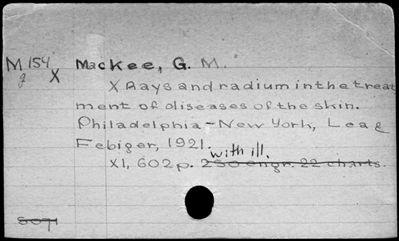 M 154 X Mackee, G. M.
g
X Rays and radium in the treat
ment of diseases of the skin.
Philadelphia - New York, Lea &
Febiger, 1921.
with ill.
XI, 602 p. 250 engr. 22 charts.
8071